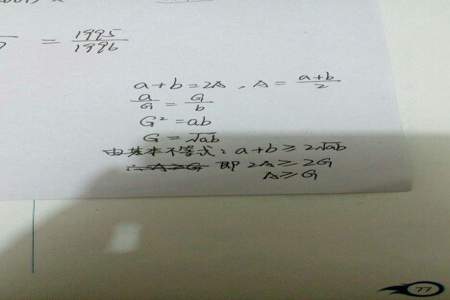 = 1995/1996
a+b=2A, A=(a+b)/2
a/G = G/b
G²=ab
G=√ab
由基本不等式: a+b≥2√ab
∴A≥G 即 2A≥2G
A≥G
77